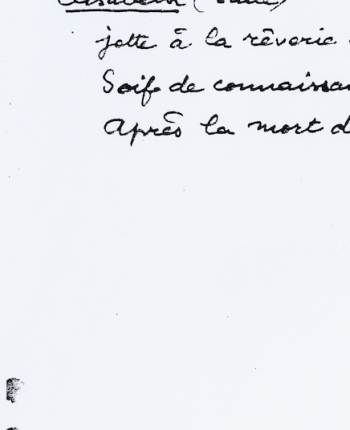 (suite)
jette à la rêverie
Soif de connaissan
Après la mort d